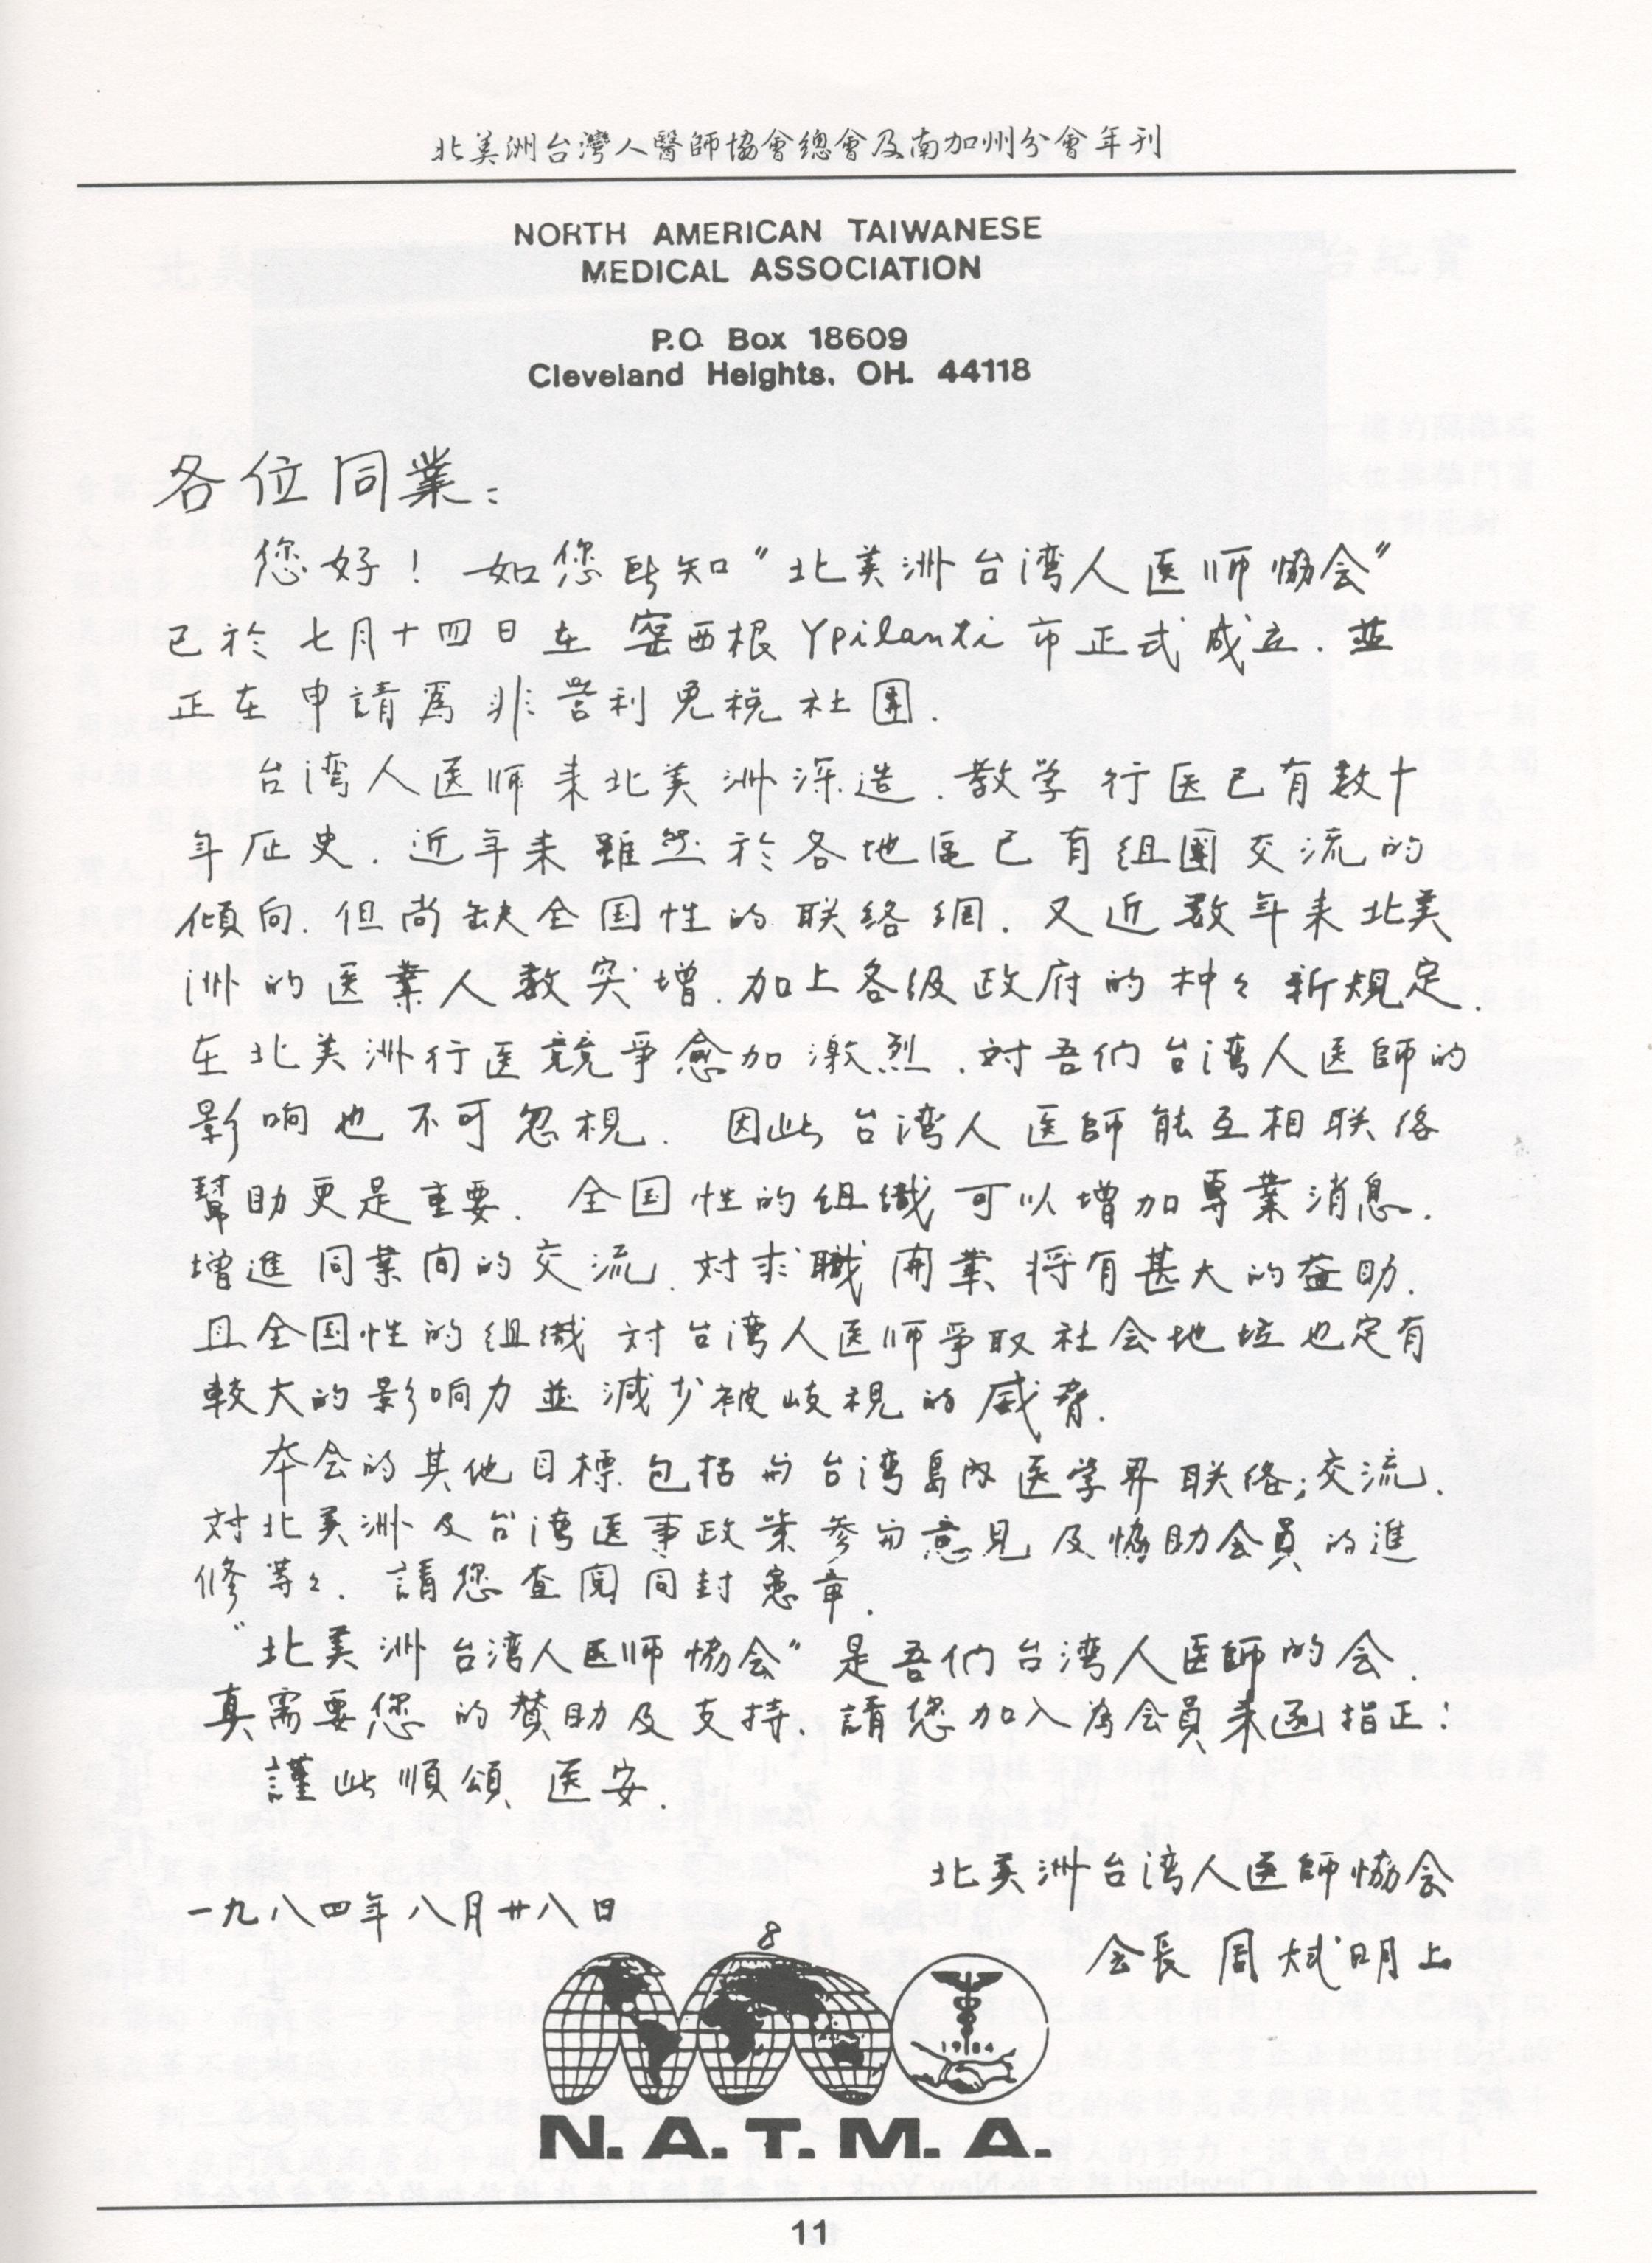 北美洲台灣人醫師協會總會及南加州分會年刊
NORTH AMERICAN TAIWANESE
MEDICAL ASSOCIATION
P.O. Box 18609
Cleveland Heights, OH. 44118
各位同業：
您好！如您所知"北美洲台湾人医师協会"
已於七月十四日在密西根Ypilanti市正式成立．並
正在申請爲非营利免税社团．
台湾人医师来北美洲深造．教学行医已有数十
年历史．近年来雖然於各地區已有组團交流的
傾向．但尚缺全国性的联络網．又近数年来北美
洲的医業人数突增．加上各级政府的种々新規定．
在北美洲行医競爭愈加激烈．対吾们台湾人医師的
影响也不可忽視．因此台湾人医師能互相联络
幫助更是重要．全国性的组織可以增加專業消息．
增進同業间的交流．対求職開業将有甚大的益助．
且全国性的组織対台湾人医师爭取社会地位也定有
較大的影响力並減少被歧視的威脅．
本会的其他目標包括与台湾島內医学界联络；交流．
対北美洲及台湾医事政策参与意見及協助会員的進
修等々．請您查閱同封憲章．
"北美洲台湾人医师協会"是吾们台湾人医師的会．
真需要您的賛助及支持．請您加入为会員来函指正：
謹此順頌医安．
北美洲台湾人医師協会
一九八四年八月廿八日
会長 周烒明上
8
1984
N.A.T.M.A.
11